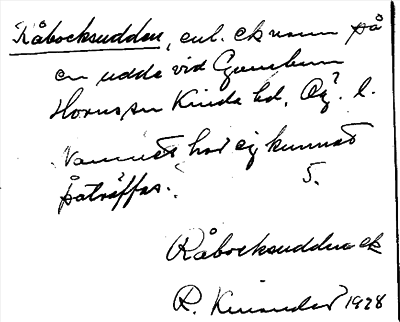 Råbocksudden, enl. ek namn på
en udde vid
Horns sn Kinda hd, Ög. l.
Namnet har ej kunnat
påträffas.
5.
Råbocksudden ek
R. 1928